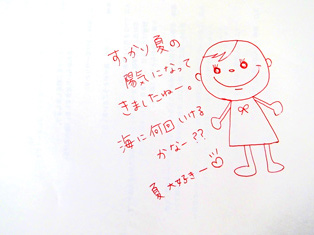 すっかり夏の
陽気になって
きましたねー。
海に何回いける
かなー??
夏大好きー